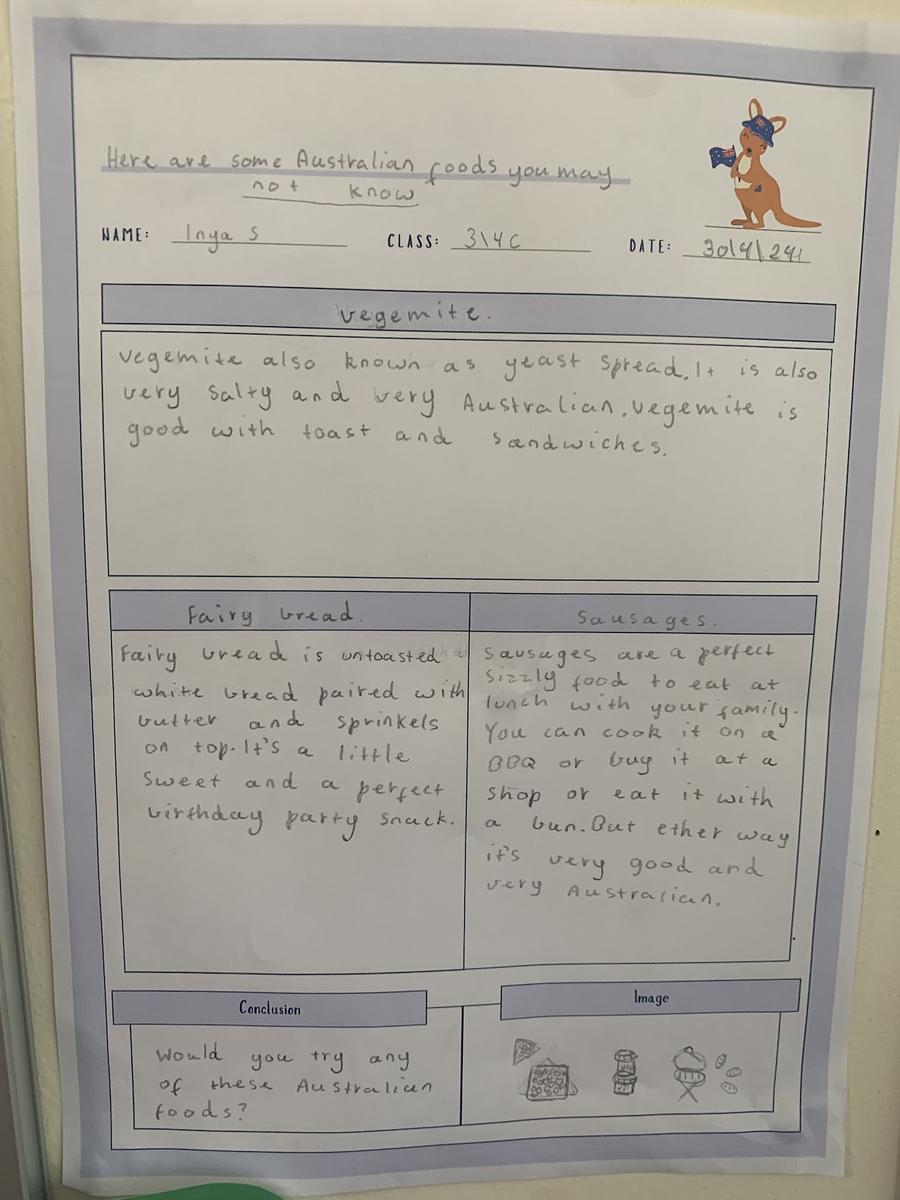 Here are some Australian foods you may
not know
NAME: Inya S CLASS: 3\4C DATE: 30\4\24
Vegemite.
Vegemite also known as yeast spread. It is also
very salty and very Australian. Vegemite is
good with toast and sandwiches.
Fairy bread.
Fairy bread is untoasted
white bread paired with
butter and sprinkels
on top. It's a little
sweet and a perfect
birthday party snack.
Sausages.
Sausages are a perfect
sizzly food to eat at
lunch with your family.
You can cook it on a
BBQ or buy it at a
shop or eat it with
a bun. But ether way
it's very good and
very Australian.
Conclusion
Would you try any
of these Australian
foods?
Image